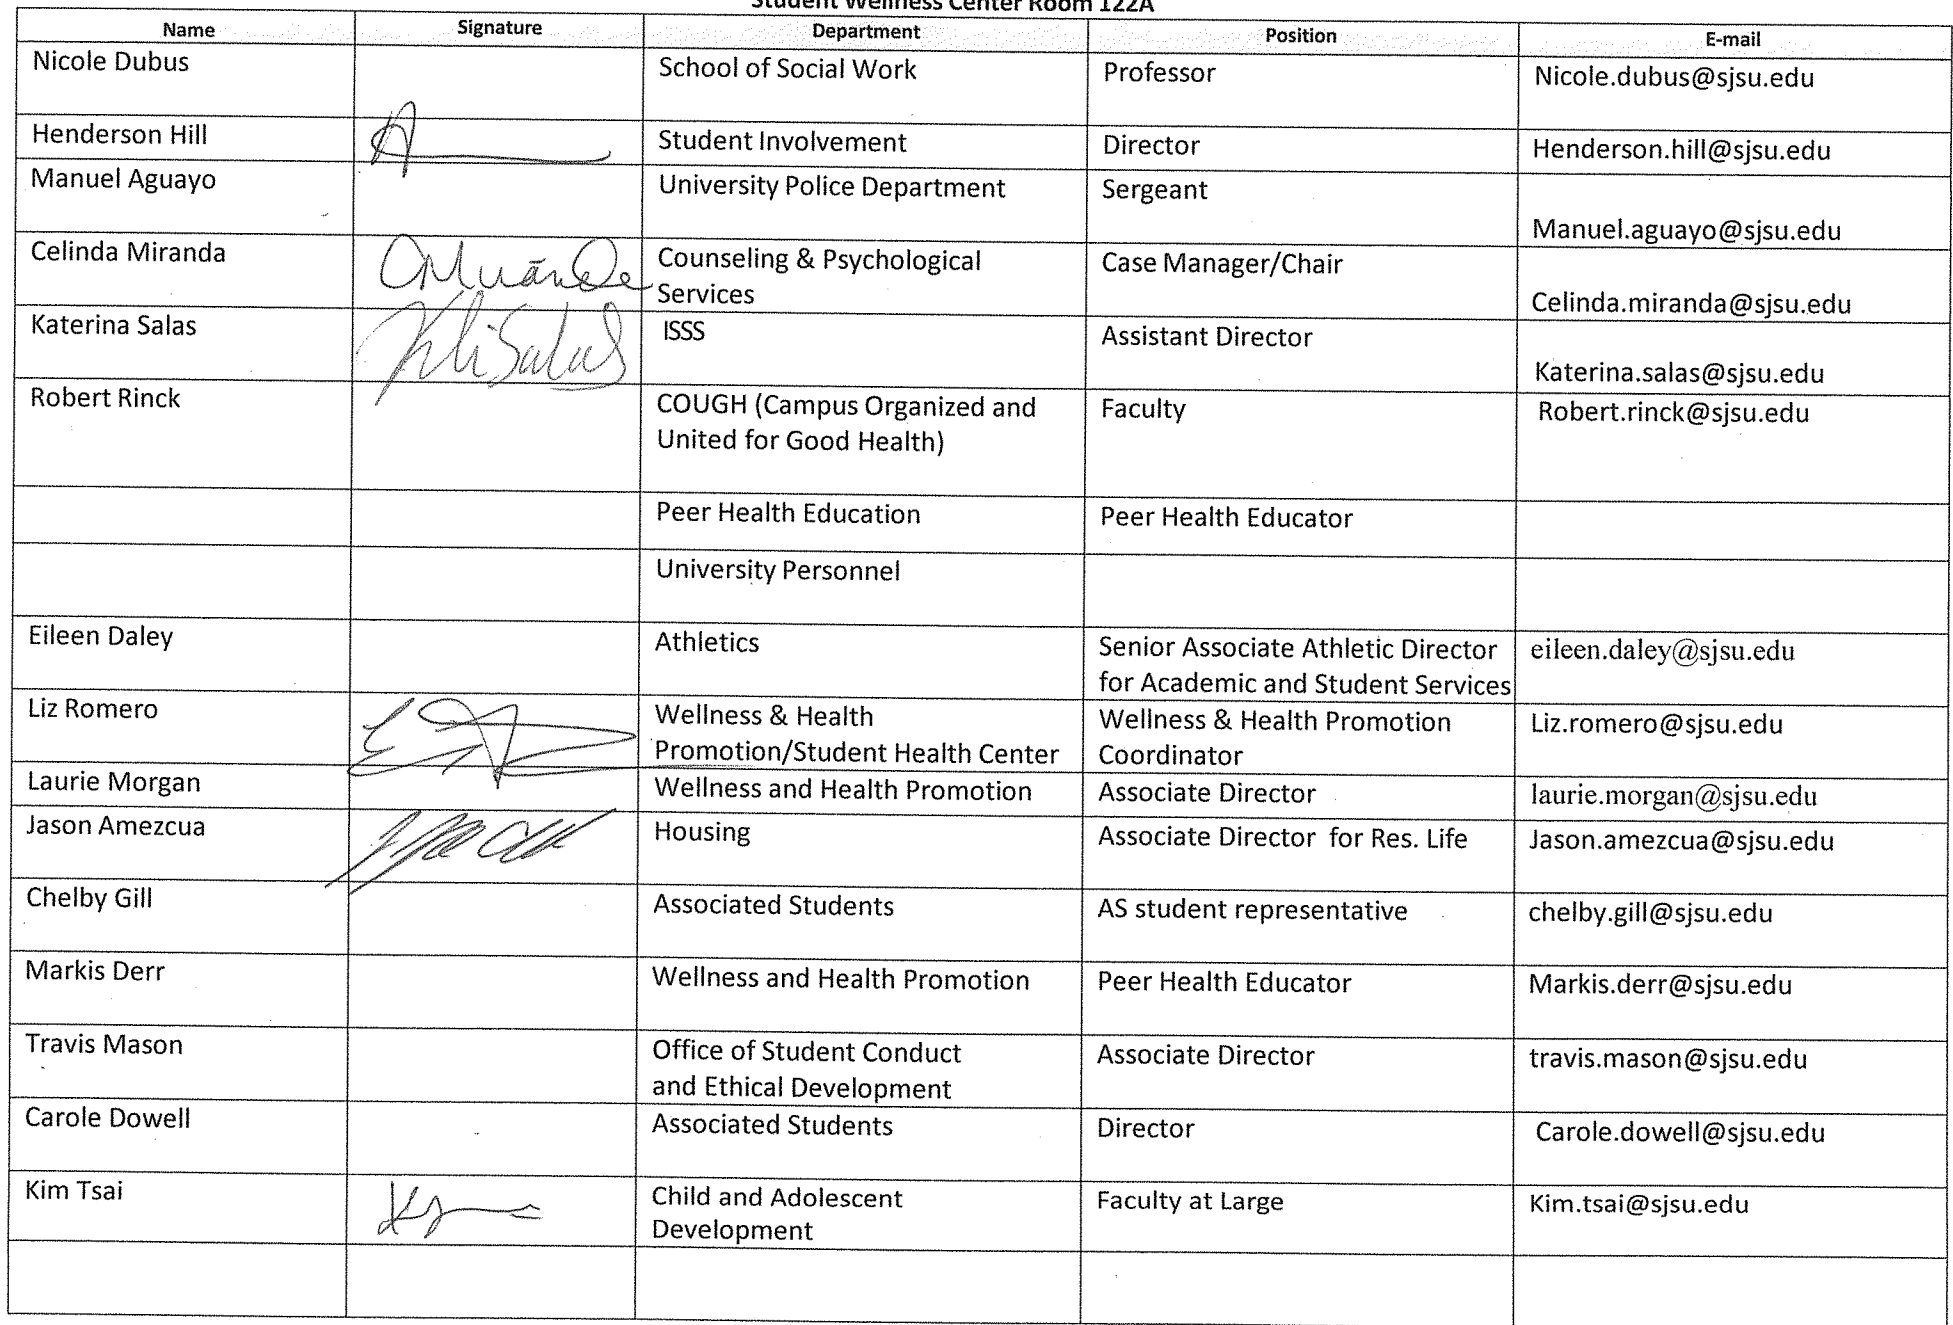 Student Wellness Center Room 122A
Name Signature Department Position E-mail
Nicole Dubus School of Social Work Professor Nicole.dubus@sjsu.edu
Henderson Hill Student Involvement Director Henderson.hill@sjsu.edu
Manuel Aguayo University Police Department Sergeant Manuel.aguayo@sjsu.edu
Celinda Miranda Counseling & Psychological Case Manager/Chair
Services Celinda.miranda@sjsu.edu
Katerina Salas ISSS Assistant Director Katerina.salas@sjsu.edu
Robert Rinck COUGH (Campus Organized and Faculty Robert.rinck@sjsu.edu
United for Good Health)
Peer Health Education Peer Health Educator
University Personnel
Eileen Daley Athletics Senior Associate Athletic Director eileen.daley@sjsu.edu
for Academic and Student Services
Liz Romero Wellness & Health Wellness & Health Promotion Liz.romero@sjsu.edu
Promotion/Student Health Center Coordinator
Laurie Morgan Wellness and Health Promotion Associate Director laurie.morgan@sjsu.edu
Jason Amezcua Housing Associate Director for Res. Life Jason.amezcua@sjsu.edu
Chelby Gill Associated Students AS student representative chelby.gill@sjsu.edu
Markis Derr Wellness and Health Promotion Peer Health Educator Markis.derr@sjsu.edu
Travis Mason Office of Student Conduct Associate Director travis.mason@sjsu.edu
and Ethical Development
Carole Dowell Associated Students Director Carole.dowell@sjsu.edu
Kim Tsai Child and Adolescent Faculty at Large Kim.tsai@sjsu.edu
Development